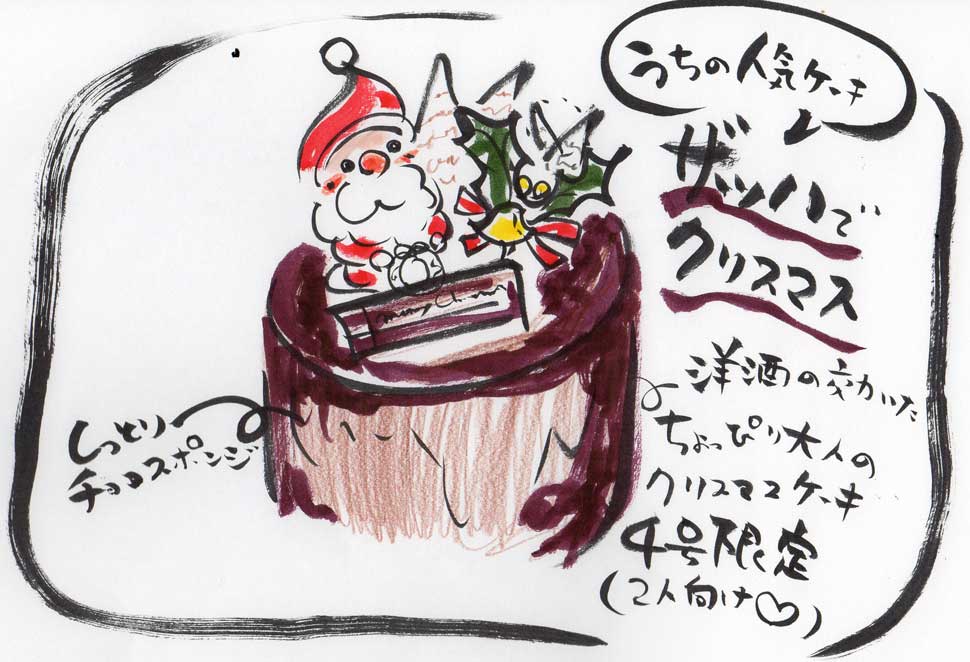 うちの人気ケーキ
ザッハで
クリスマス
洋酒の効いた
ちょっぴり大人の
クリスマスケーキ
4号限定
(2人向け♡)
しっとり
チョコスポンジ